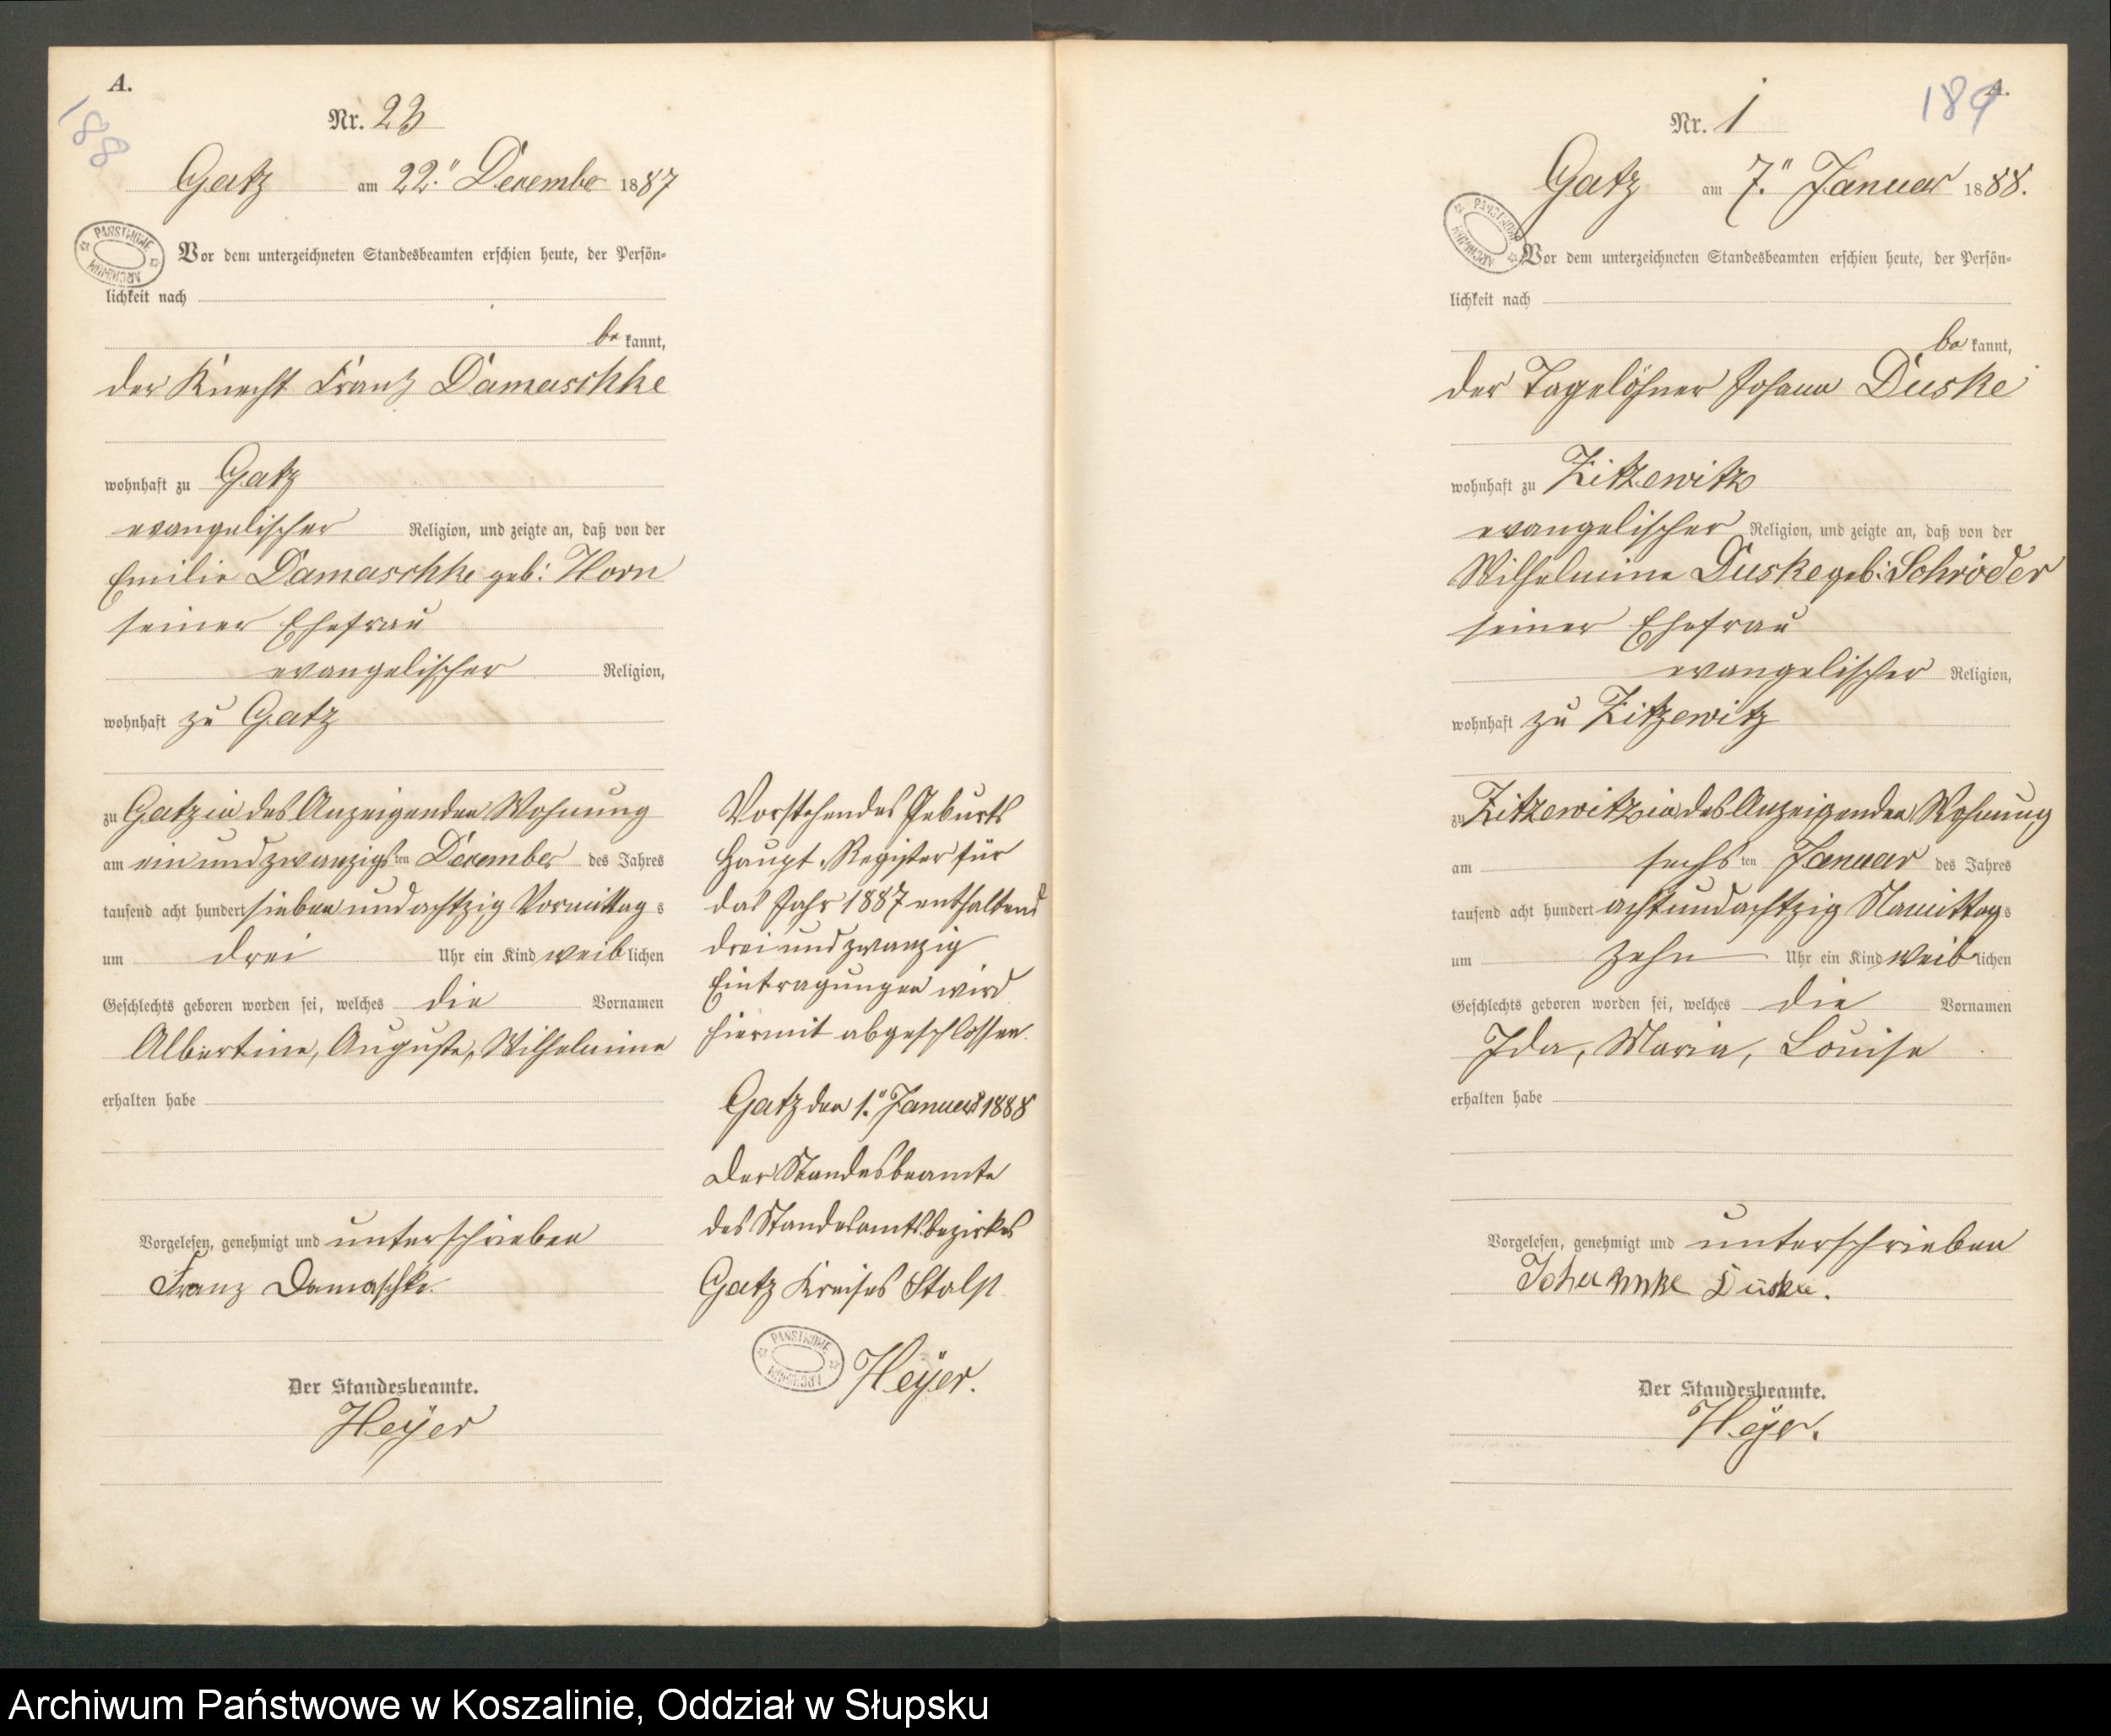 A.
188
Nr. 23
Gatz am 22.ten December 1887
PAŃSTWOWE ARCHIWUM
Vor dem unterzeichneten Standesbeamten erschien heute, der Persön-
lichkeit nach
be kannt,
der Knecht Franz Damaschke
wohnhaft zu Gatz
evangelischer Religion, und zeigte an, daß von der
Emilie Damaschke geb: Horn
seiner Ehefrau
evangelischer Religion,
wohnhaft zu Gatz
zu Gatz in des Anzeigenden Wohnung
am ein und zwanzigsten December des Jahres
tausend acht hundert sieben und achtzig Vormittags
um drei Uhr ein Kind weiblichen
Geschlechts geboren worden sei, welches die Vornamen
Albertine, Auguste, Wilhelmine
erhalten habe
Vorgelesen, genehmigt und unterschrieben
Franz Damaschke.
Der Standesbeamte.
Heÿer
Vorstehendes Geburts
Haupt-Register für
das Jahr 1887 enthaltend
drei und zwanzig
Eintragungen wird
hiermit abgeschlossen.
Gatz den 1. Januar 1888
Der Standesbeamte
des Standesamtsbezirkes
Gatz Kreises Stolp
PAŃSTWOWE ARCHIWUM
Heÿer.
A.
189
Nr. 1
Gatz am 7. Januar 1888.
PAŃSTWOWE ARCHIWUM
Vor dem unterzeichneten Standesbeamten erschien heute, der Persön-
lichkeit nach
be kannt,
der Tagelöhner Johann Duske
wohnhaft zu Zitzewitz
evangelischer Religion, und zeigte an, daß von der
Wilhelmine Duske geb: Schröder
seiner Ehefrau
evangelischer Religion,
wohnhaft zu Zitzewitz
zu Zitzewitz in des Anzeigenden Wohnung
am sechsten Januar des Jahres
tausend acht hundert acht und achtzig Namittags
um zehn Uhr ein Kind weiblichen
Geschlechts geboren worden sei, welches die Vornamen
Ida, Maria, Louise
erhalten habe
Vorgelesen, genehmigt und unterschrieben
Duske.
Der Standesbeamte.
Heÿer.
Archiwum Państwowe w Koszalinie, Oddział w Słupsku